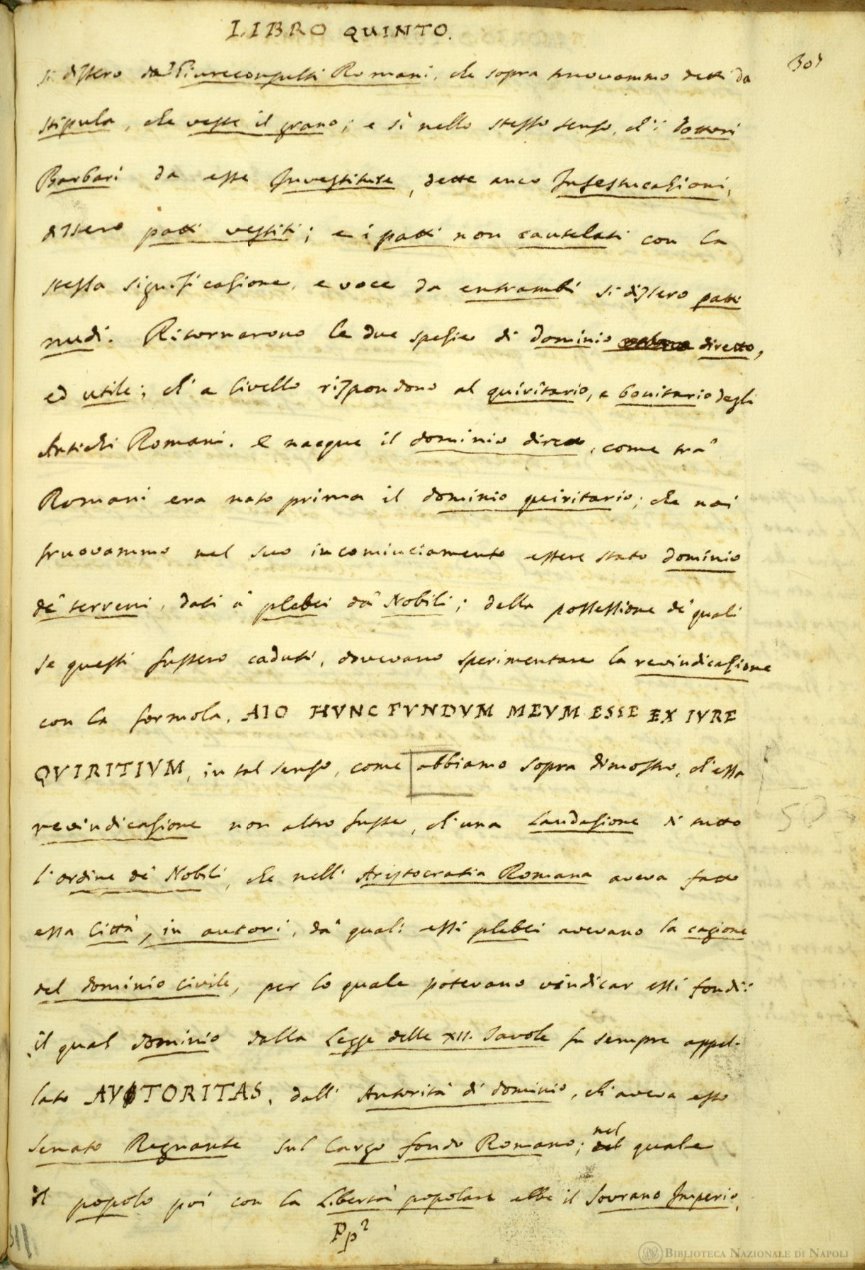 LIBRO QUINTO.
307
si dissero da' Giureconsulti Romani, che sopra truovammo detti da
stipula, che veste il grano; e sì nello stesso senso, ch'i Dottori
Barbari da esse Investiture, dette anco Infestucazioni,
dissero patti vestiti; e i patti non cautelati con la
stessa significazione, e voce da entrambi si dissero patti
nudi. Ritornarono le due spezie di dominio diretto,
ed utile; ch'a livello rispondono al quiritario, e bonitario degli
Antichi Romani. E nacque il dominio diretto, come tra'
Romani era nato prima il dominio quiritario; che noi
truovammo nel suo incominciamento essere stato dominio
de' terreni, dati a' plebei da' Nobili; dalla possessione de' quali
se questi fussero caduti, dovevano sperimentare la revindicazione
con la formola, AIO HVNC FVNDVM MEVM ESSE EX IVRE
QVIRITIVM, in tal senso, come abbiamo sopra dimostro, ch'essa
revindicazione non altro fusse, ch'una laudazione di tutto
l'ordine de' Nobili, che nell' Aristocratia Romana aveva fatto
essa Città, in autori, da' quali essi plebei avevano la cagione
del dominio civile, per lo quale potevano vindicar essi fondi:
il qual dominio dalla Legge delle XII. Tavole fu sempre appel-
lato AVTORITAS, dall' Autorità di dominio, ch'aveva esso
Senato Regnante sul largo fondo Romano; nel quale
il popolo poi con la Libertà popolare ebbe il Sovrano Imperio.
Pp2
BIBLIOTECA NAZIONALE DI NAPOLI